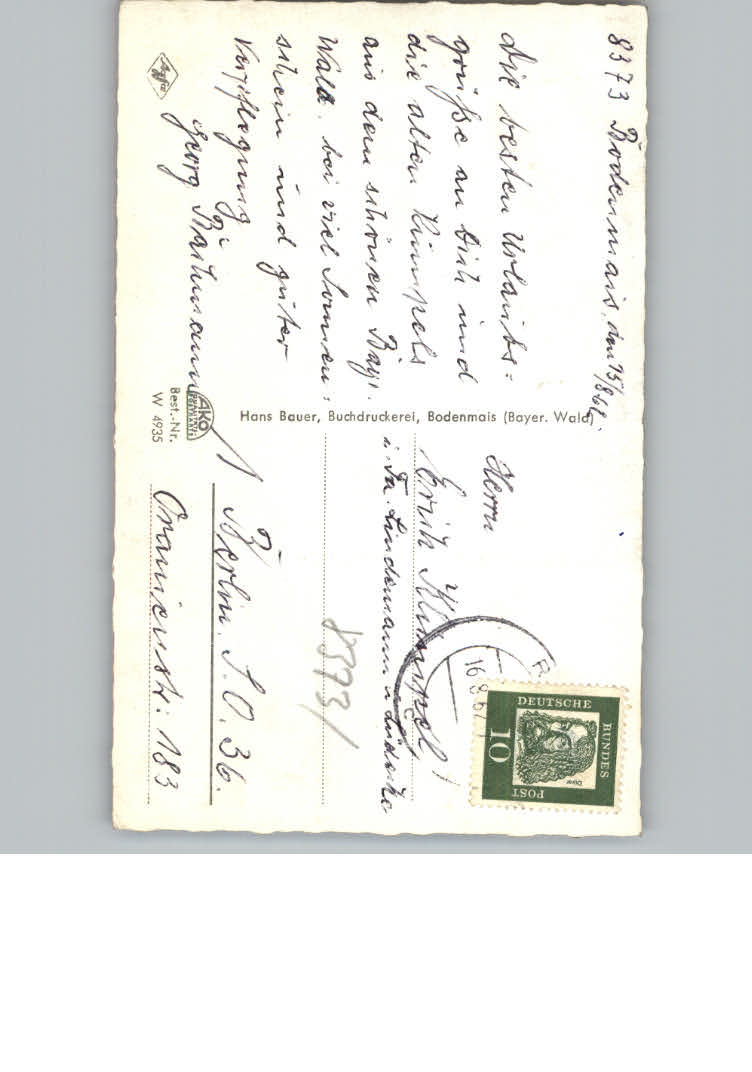 8373 Bodenmais, den 15/8 62.
Die besten Urlaubs-
grüße an Dich und
die alten Kumpels
aus dem schönen Bayr.
Wald. bei viel Sonnen-
schein und guter
Verpflegung
Georg
Agfa
Hans Bauer, Buchdruckerei, Bodenmais (Bayer. Wald)
AKO
Best.-Nr.
W 4935
Herrn
Erich Klumpol
i. Fa. Lindemann u. Lüdicke
1 Berlin. S.O. 36.
Oranienstr: 183
8373/
16.8.62
DEUTSCHE
BUNDES
POST
10
Dürer